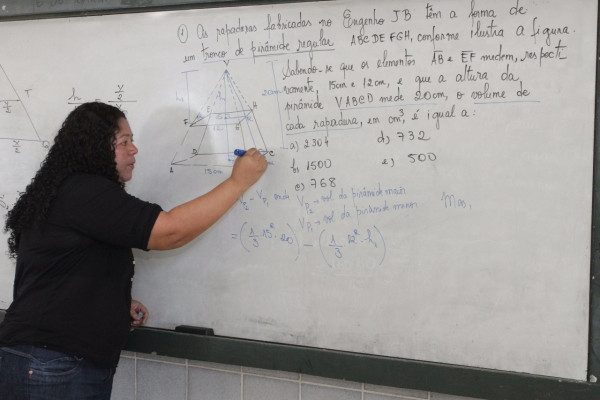 1) As rapaduras fabricadas no Engenho JB têm a forma de
um tronco de pirâmide regular ABCDEFGH, conforme ilustra a figura.
Sabendo-se que os elementos AB e EF medem, respecti
vamente, 15cm e 12cm, e que a altura da
pirâmide VABCD mede 20cm, o volume de
cada rapadura, em cm³, é igual a:
a) 2304 d) 732
b) 1500 e) 500
c) 768
V
20cm
H
A D C
15cm
T
onde V_P2 → vol. da pirâmide maior
V_P1 → vol. da pirâmide menor
Mas,
= (1/3 · 15² · 20) - (1/3 · 12² · h₁)